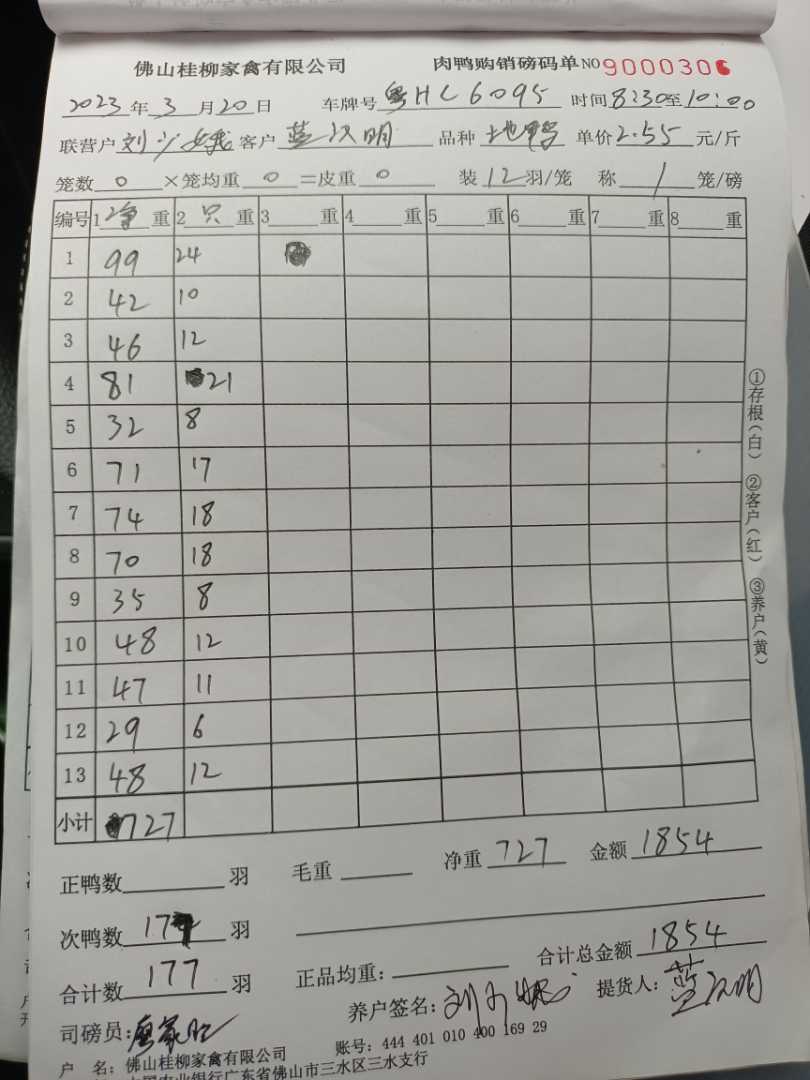 佛山桂柳家禽有限公司 肉鸭购销磅码单 NO 9000306
2023年3月20日 车牌号粤HL6095 时间8:30至10:00
联营户刘少娥 客户蓝汉明 品种土地鸭 单价2.55元/斤
笼数0×笼均重0=皮重0 装12羽/笼 称1笼/磅
编号 1净重 2只重 3重 4重 5重 6重 7重 8重
1 99 24
2 42 10
3 46 12
4 81 21
5 32 8
6 71 17
7 74 18
8 70 18
9 35 8
10 48 12
11 47 11
12 29 6
13 48 12
小计 727
正鸭数 羽 毛重 净重 727 金额 1854
次鸭数 17 羽
合计数 177 羽 正品均重: 合计总金额 1854
司磅员: 养户签名: 刘 提货人: 蓝汉明
户 名: 佛山桂柳家禽有限公司 账号: 444 401 010 400 169 29
中国农业银行广东省佛山市三水区三水支行
①存根(白) ②客户(红) ③养户(黄)